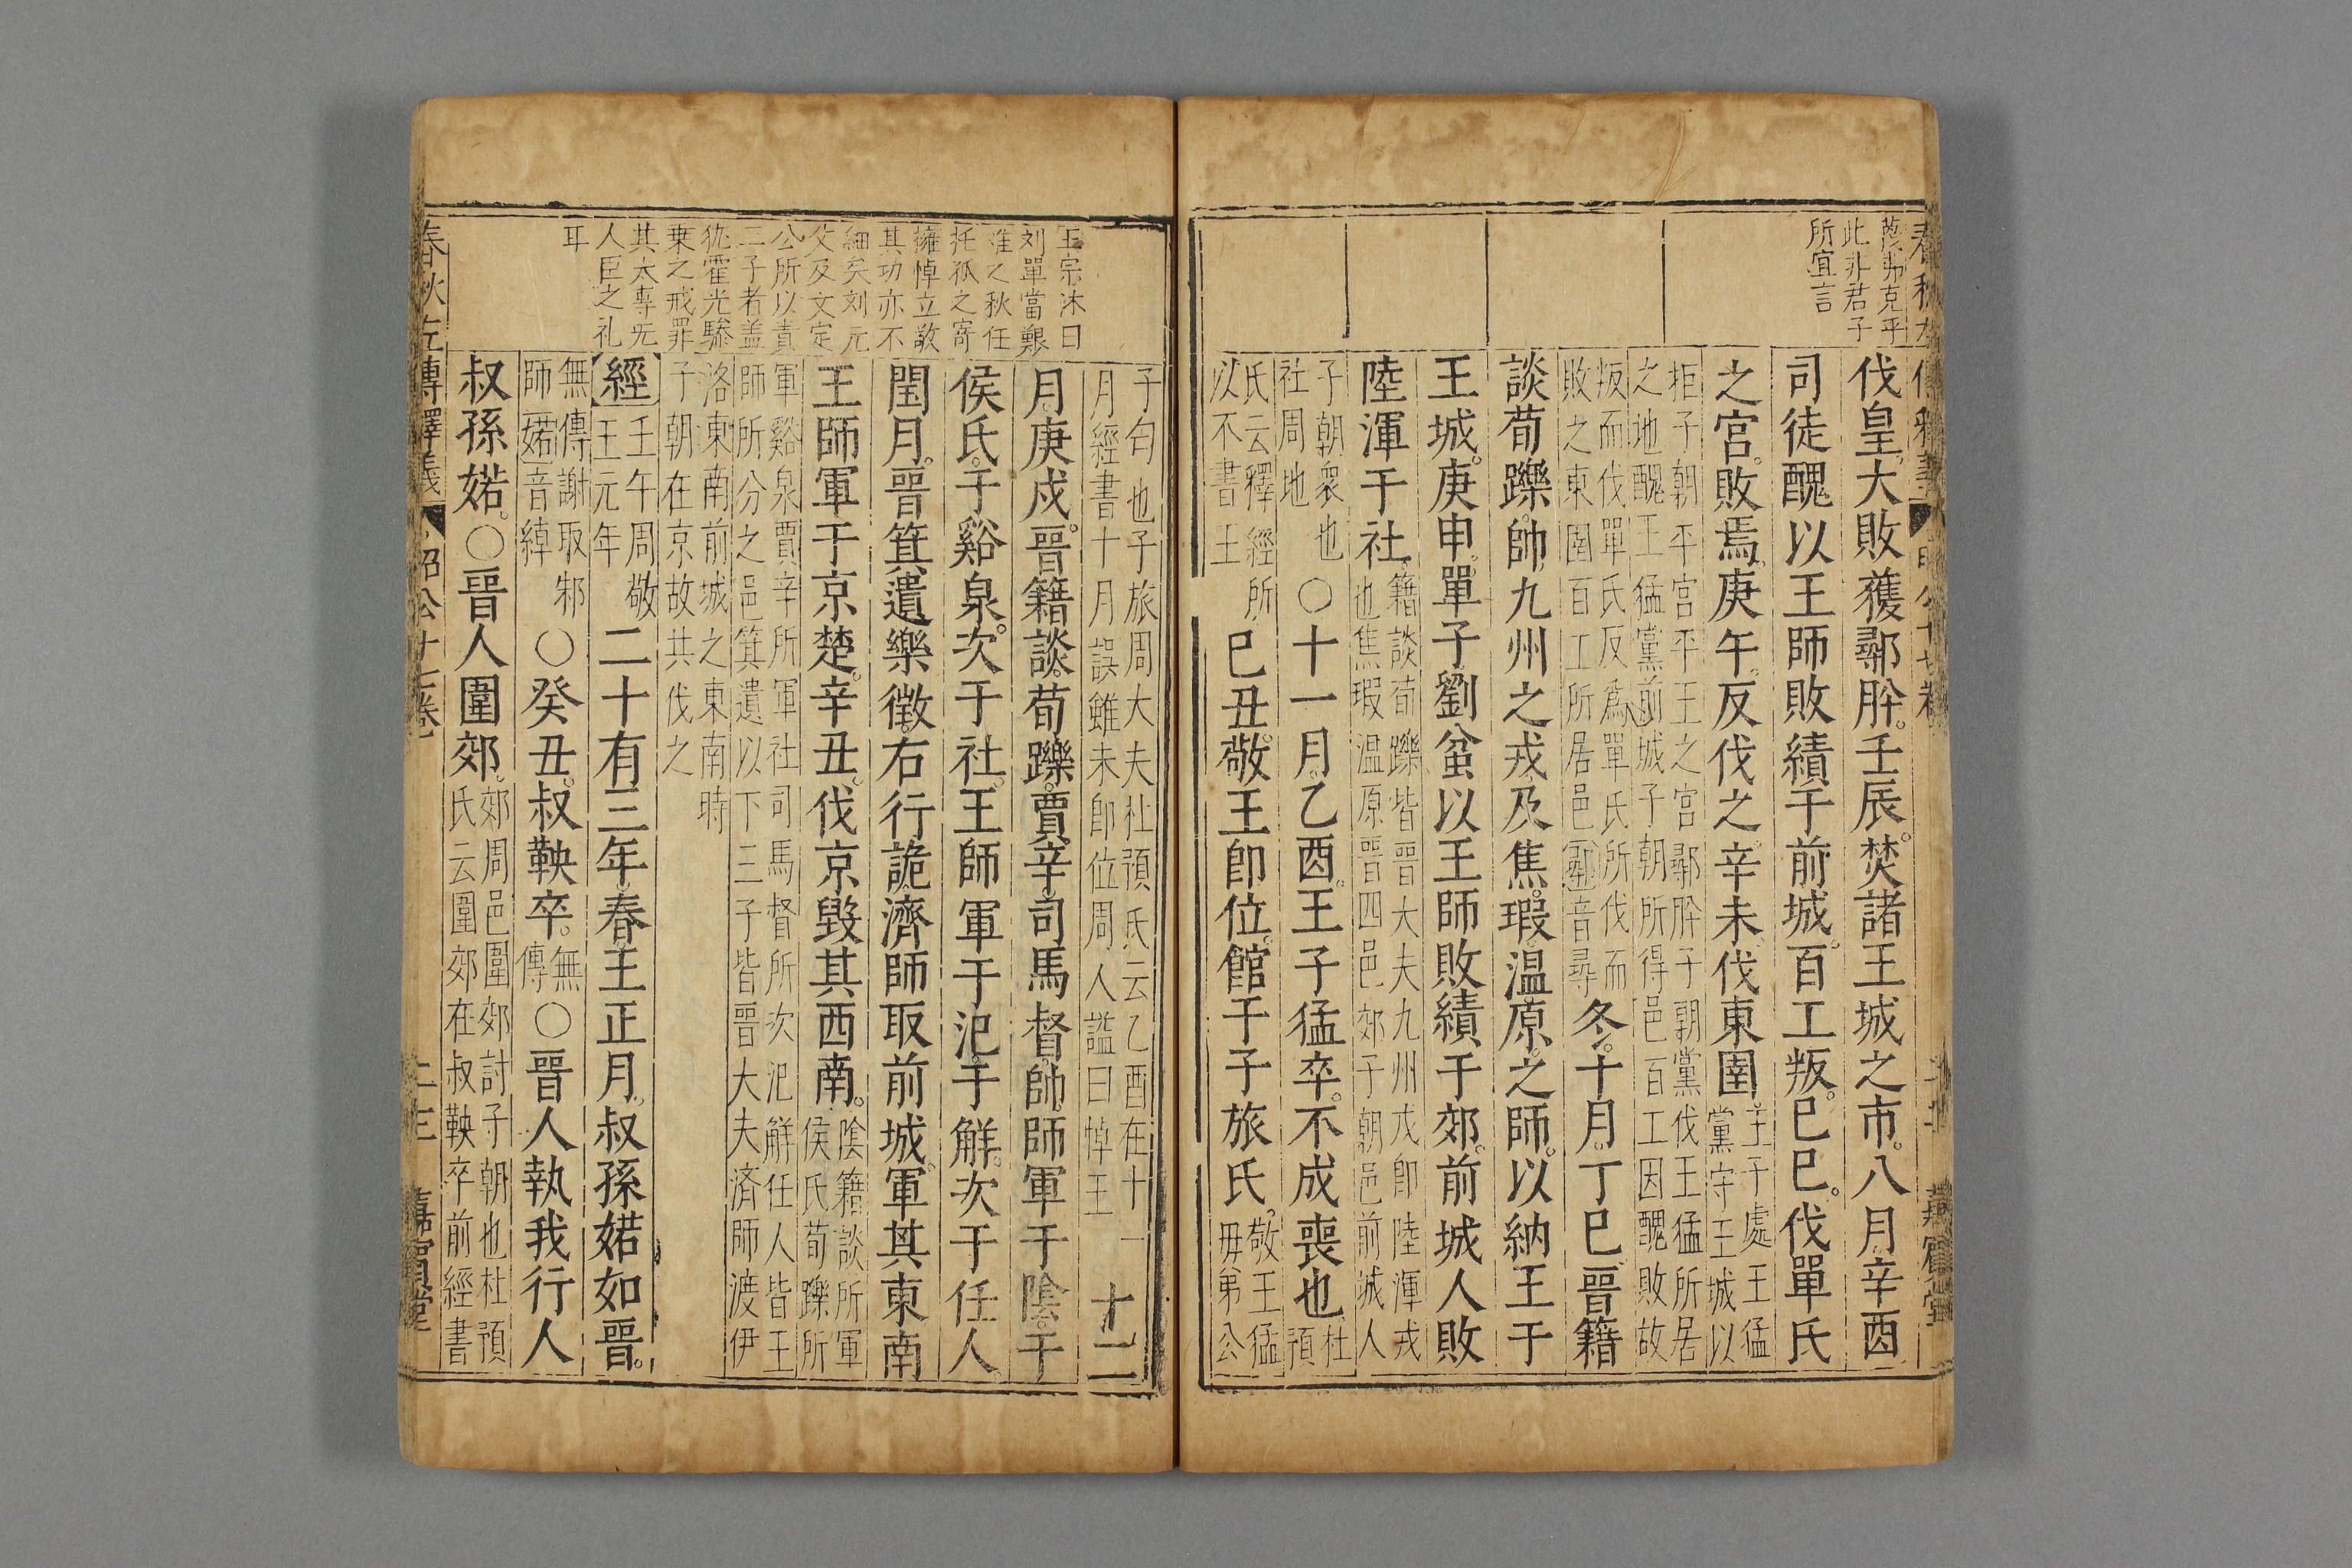 蔑弗克乎
此非君子
所宜言
伐皇大敗獲鄩肸壬辰焚諸王城之市八月辛酉
司徒醜以王師敗績于前城百工叛巳巳伐單氏
之宮敗焉庚午反伐之辛未伐東圉王子處王猛
黨守王城以
拒子朝平宮平王之宮鄩肸子朝黨伐王猛所居
之地醜王猛黨前城子朝所得邑百工因醜敗故
叛而伐單氏反爲單氏所伐而
敗之東圉百工所居邑鄩音尋
冬十月丁巳晉籍
談荀躒帥九州之戎及焦瑕温原之師以納王于
王城庚申單子劉蚠以王師敗績于郊前城人敗
陸渾于社籍談荀躒皆晋大夫九州戎即陸渾戎
也焦瑕温原晋四邑郊子朝邑前城人
子朝衆也
社周地
○十一月乙酉王子猛卒不成喪也杜預
氏云釋經所
以不書王
巳丑敬王即位館于子旅氏敬王猛
毋弟公
王宗沐曰
刘單當艱
難之秋任
托孤之寄
擁悼立敬
其功亦不
細矣刘元
父及文定
公所以責
二子者盖
犹霍光驂
乗之戒罪
其太專旡
人臣之礼
耳
子匄也子旅周大夫杜預氏云乙酉在十一
月經書十月誤雖未即位周人謚曰悼王
十二
月庚戍晉籍談荀躒賈辛司馬督帥師軍于陰于
侯氏于谿泉次于社王師軍于氾于觧次于任人
閏月晉箕遺樂徵右行詭濟師取前城軍其東南
王師軍于京楚辛丑伐京毀其西南陰籍談所軍
侯氏荀躒所
軍谿泉賈辛所軍社司馬督所次氾觧任人皆王
師所分之邑箕遺以下三子皆晋大夫済師渡伊
洛東南前城之東南時
子朝在京故共伐之
經壬午周敬
王元年
二十有三年春王正月叔孫婼如晉
無傳謝取邾
師婼音綽
○癸丑叔鞅卒無
傳
○晉人執我行人
叔孫婼○晉人圍郊郊周邑圍郊討子朝也杜預
氏云圍郊在叔鞅卒前經書
春秋左傳釋義 昭公十七卷 二三 嘉賓堂